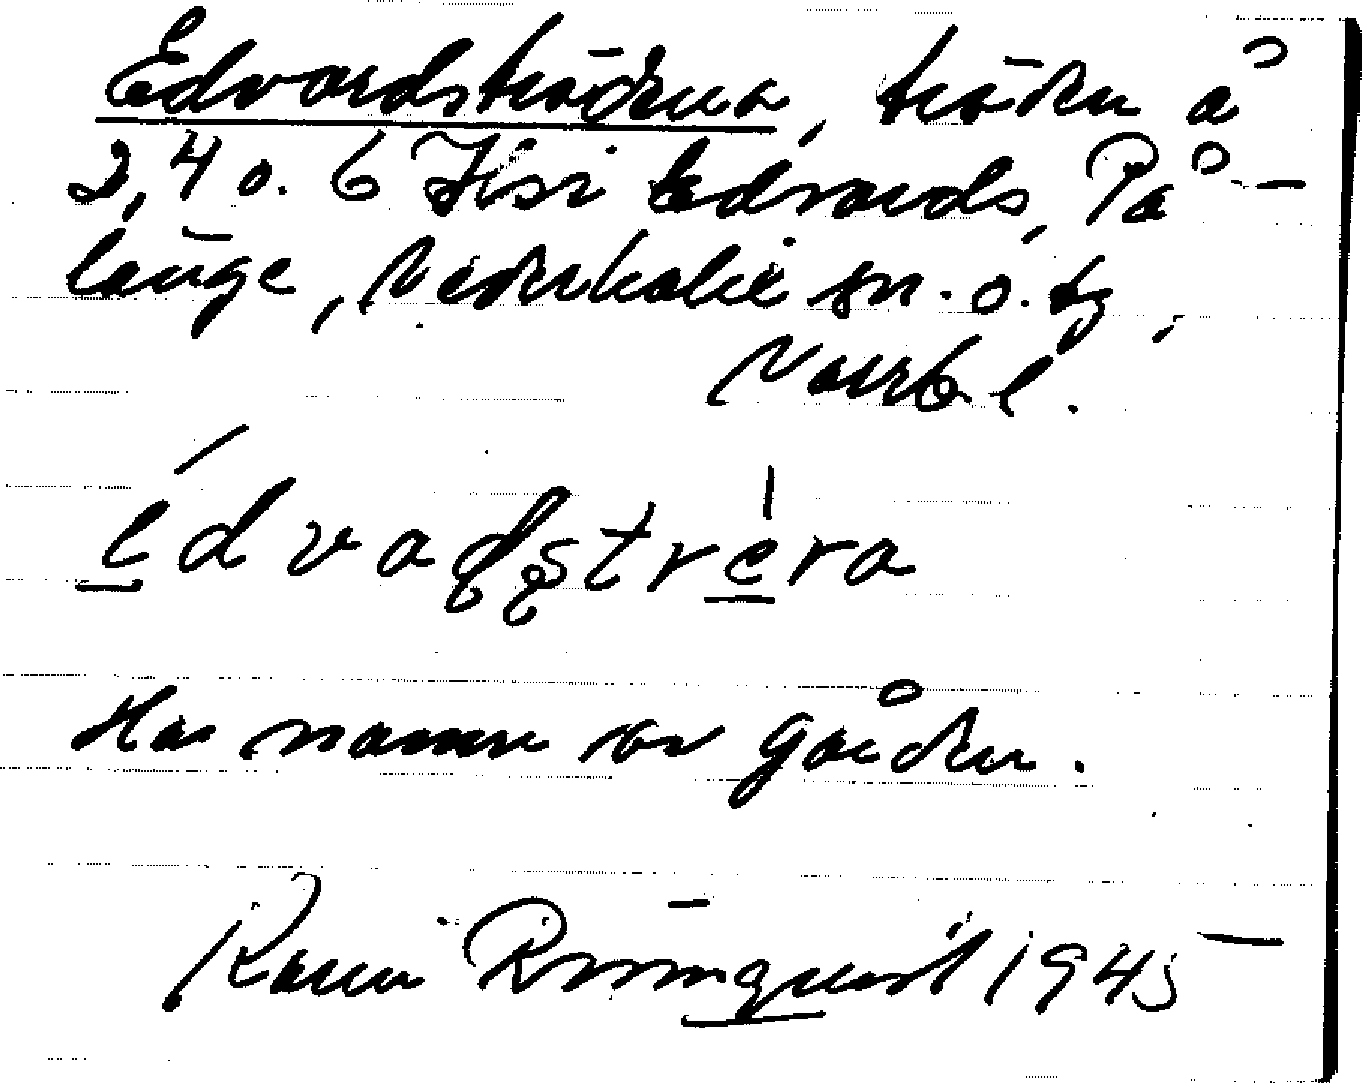 Edvardsträdena, träden å
2, 4 o. 6 Jisi Edvards, På-
länge, Nederkalix sn. o. tg,
Norrb. l.
édvaḍṣtrera
Har namn av gården.
Karin Rönnqvist 1945